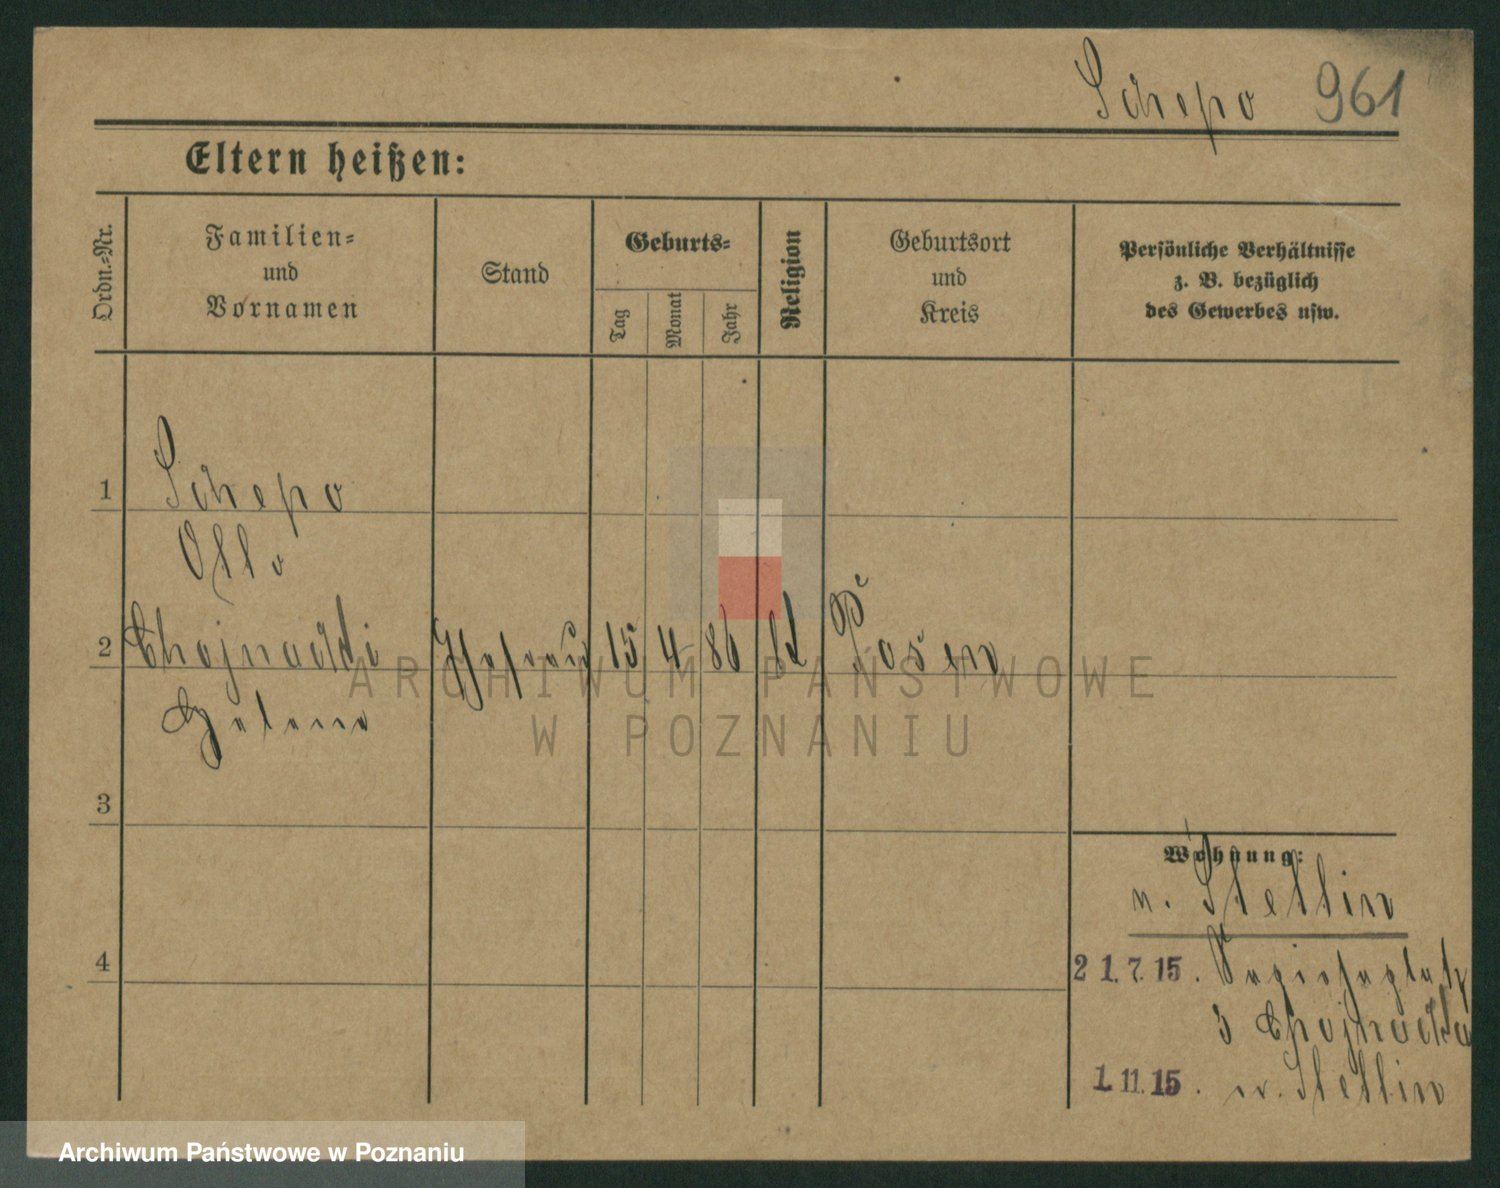 Schepo 961
Eltern heißen:
Ordn.-Nr.
Familien-
und
Vornamen
Stand
Geburts-
Tag
Monat
Jahr
Religion
Geburtsort
und
Kreis
Persönliche Verhältnisse
z. B. bezüglich
des Gewerbes usw.
1 Schepo
Otto
2 Chojnacki Ehefrau 15 4 86 Posen
Helene
3
Wohnung:
n. Stettin
4
21.7.15. Sapiehaplatz
3 Chojnacka
1.11.15. n. Stettin
ARCHIWUM PAŃSTWOWE
W POZNANIU
Archiwum Państwowe w Poznaniu